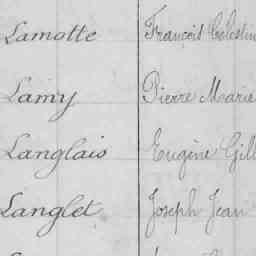 Lamotte François Célestin
Lamy Pierre Marie
Langlais Eugène Gill
Langlet Joseph Jean